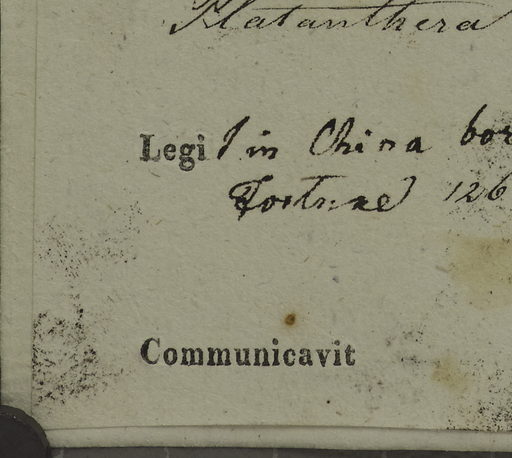 Platanthera
Legit in China bor
Fortune 126
Communicavit